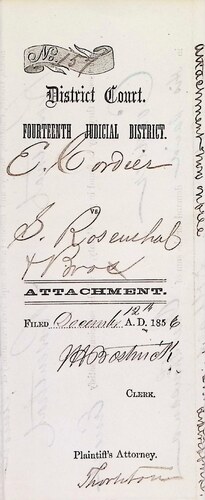 No. 157
District Court.
FOURTEENTH JUDICIAL DISTRICT.
E. Cordier
vs
S. Rosenthal
& Bros
ATTACHMENT.
FILED December 12th A. D. 1856
Bostwick
CLERK.
Plaintiff's Attorney.
Thornton